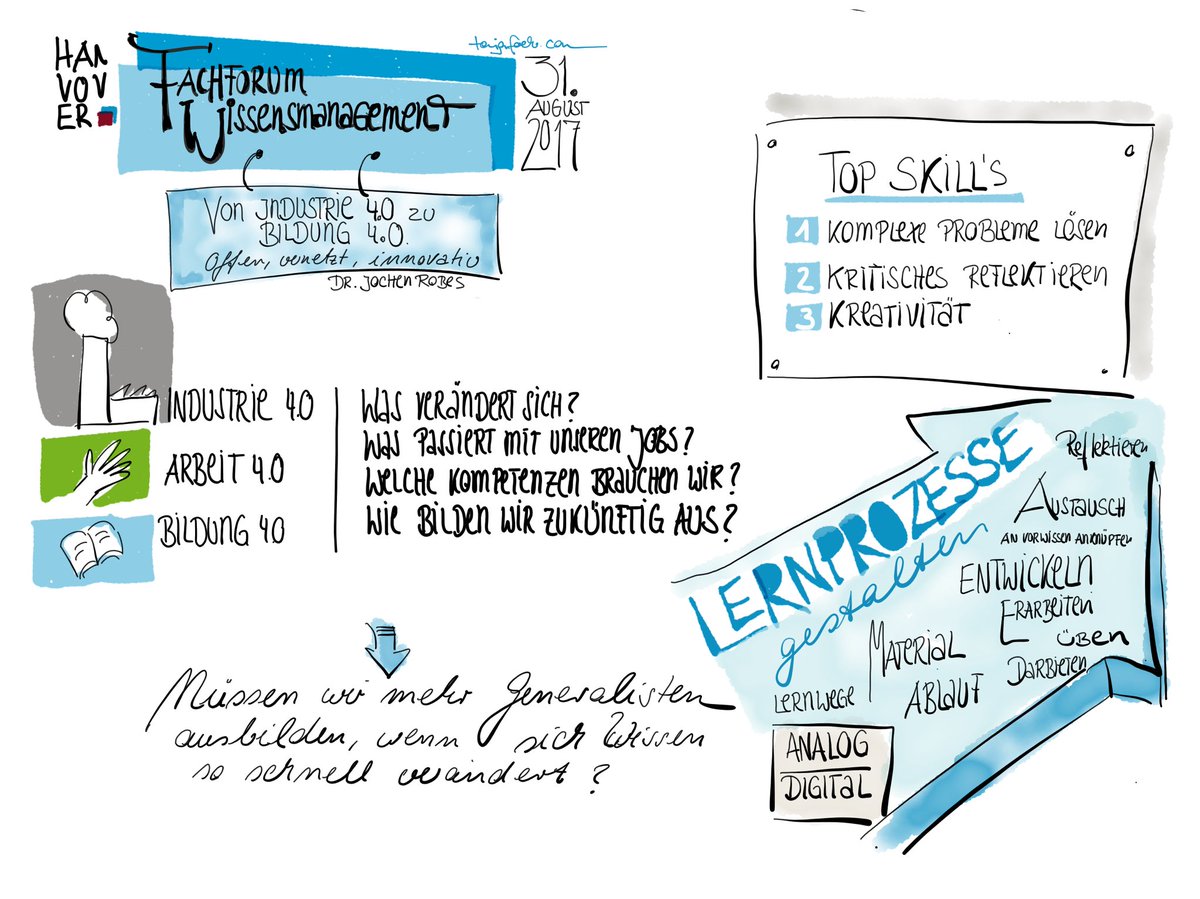 HAN
VOV
ER
FACHFORUM
WISSENSMANAGEMENT
31.
AUGUST
2017
VON INDUSTRIE 4.0 ZU
BILDUNG 4.0.
offen, vernetzt, innovativ
DR. JOCHEN ROBES
INDUSTRIE 4.0
ARBEIT 4.0
BILDUNG 4.0
WAS VERÄNDERT SICH?
WAS PASSIERT MIT UNSEREN JOBS?
WELCHE KOMPETENZEN BRAUCHEN WIR?
WIE BILDEN WIR ZUKÜNFTIG AUS?
Müssen wir mehr Generalisten
ausbilden, wenn sich Wissen
so schnell verändert?
TOP SKILL'S
1 KOMPLEXE PROBLEME LÖSEN
2 KRITISCHES REFLEKTIEREN
3 KREATIVITÄT
LERNPROZESSE
gestalten
Reflektieren
AUSTAUSCH
AN VORWISSEN ANKNÜPFEN
ENTWICKELN
ERARBEITEN
ÜBEN
DARBIETEN
MATERIAL
ABLAUF
LERNWEGE
ANALOG
DIGITAL